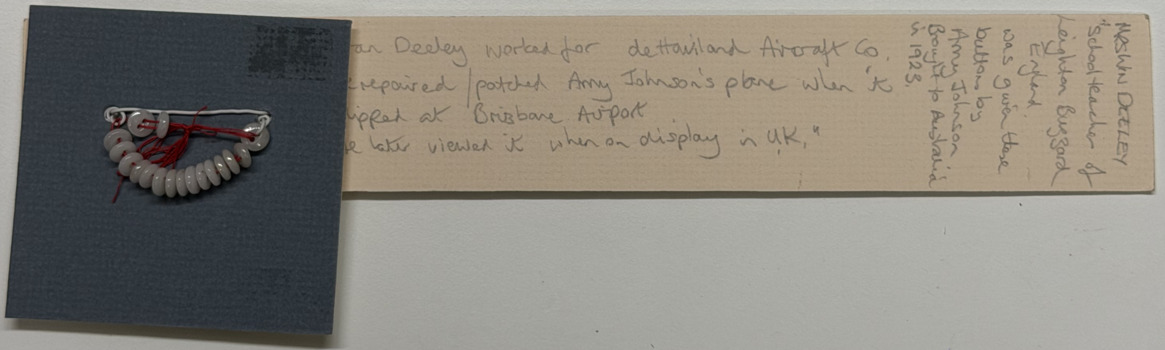 an Deeley worked for deHaviland Aircraft Co.
repaired/patched Amy Johnson's plane when "it
ipped at Brisbane Airport
e later viewed it when on display in U.K."
DEELEY
"School teacher of
Leighton Buzzard
England.
was given these
buttons by
Amy Johnson
Brought to Australia
in 1923.